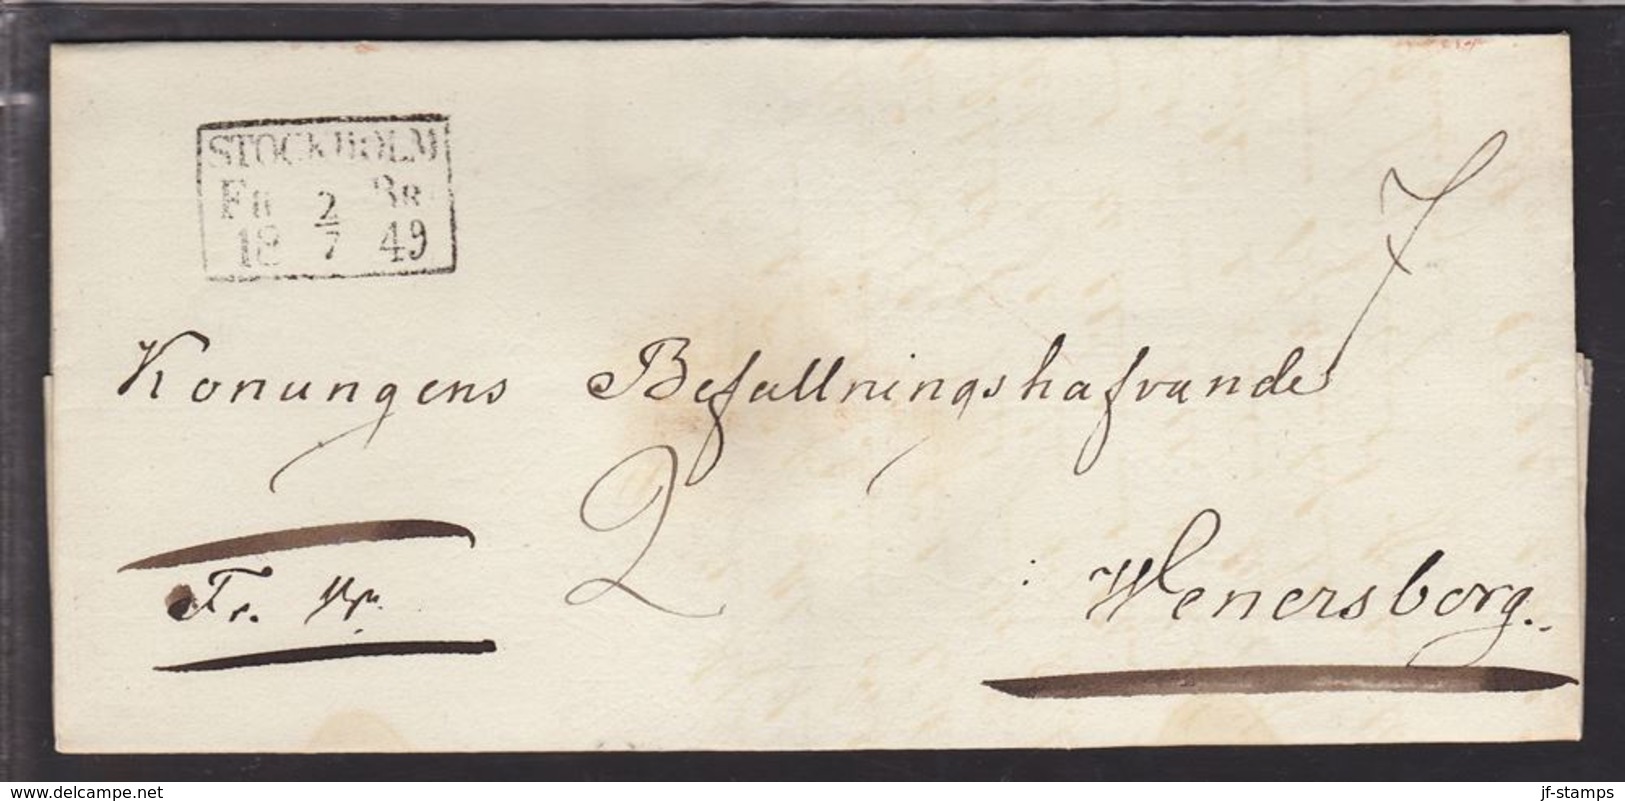 STOCKHOLM
FR 2 BR
18 7 49
7
Konungens Befallningshafvande
2
Wenersborg.
Fr.
www.delcampe.net
jf-stamps